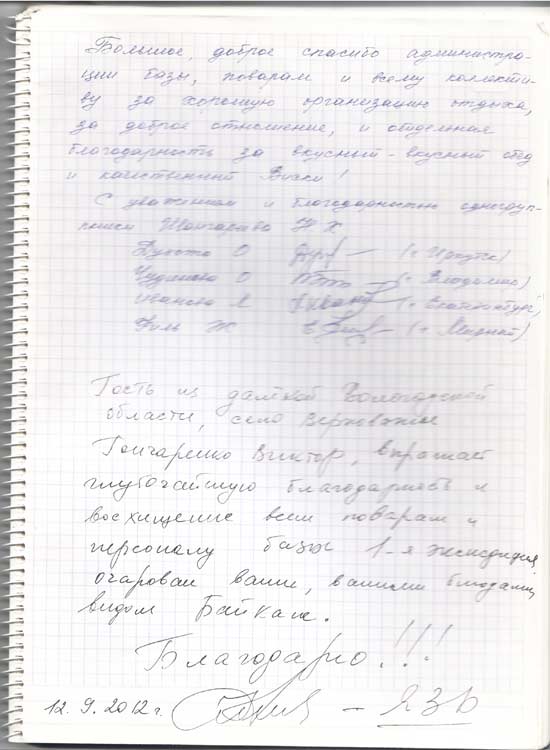 Большое, доброе спасибо администра-
ции базы, поварам и всему коллекти-
ву за хорошую организацию отдыха,
за доброе отношение, и отдельная
благодарность за вкусный-вкусный обед
и качественный
С уважением и благодарностью одногруп-
О (г Иркутск)
О
Иванова Л
Ж
Гость из далёкой Вологодской
области, село Верховажье
Гончаренко Виктор, выражает
глубочайшую благодарность и
восхищение всем поварам и
персоналу базы 1-я экспедиция
очарован вами, вашими блюдами,
видом Байкала.
Благодарю!!!
12.9.2012 г.